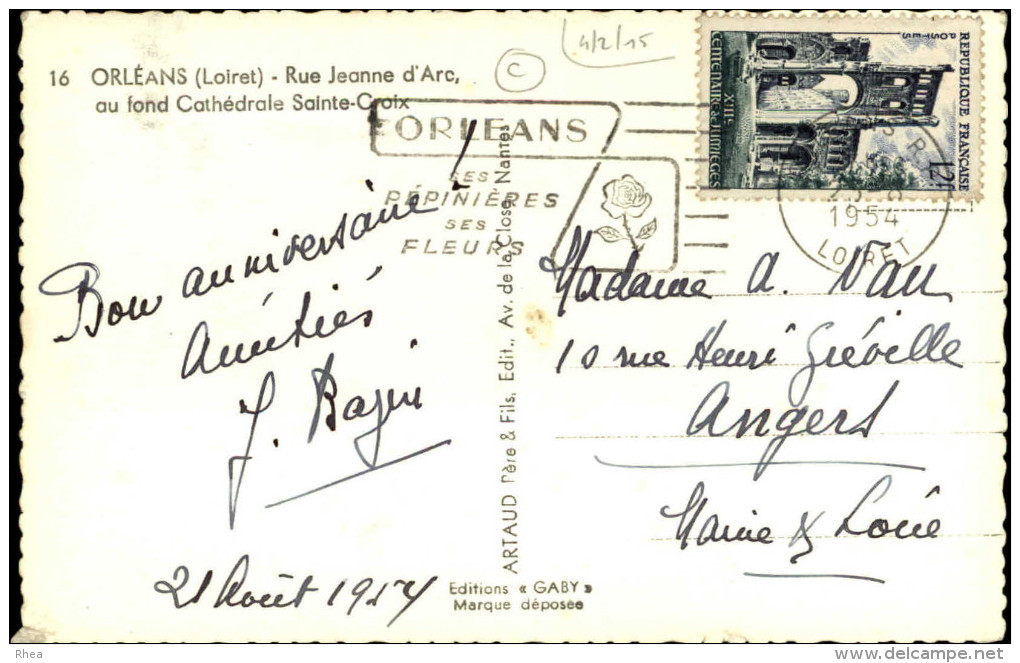 16 ORLÉANS (Loiret) - Rue Jeanne d'Arc,
au fond Cathédrale Sainte-Croix
4/2/15
C
ORLEANS
SES
PÉPINIÈRES
SES
FLEURS
REPUBLIQUE FRANÇAISE
POSTES
12F
XIIIE CENTENAIRE de JUMIEGES
1954
LOIRET
Bon anniversaire !
Amitiés
J. Bazin
21 Août 1954
ARTAUD Père & Fils, Edit., Av. de la Close, Nantes
Editions « GABY »
Marque déposée
Madame A. Van
10 rue Henri Gréville
Angers
Maine & Loire
Rhea
delcampe.net